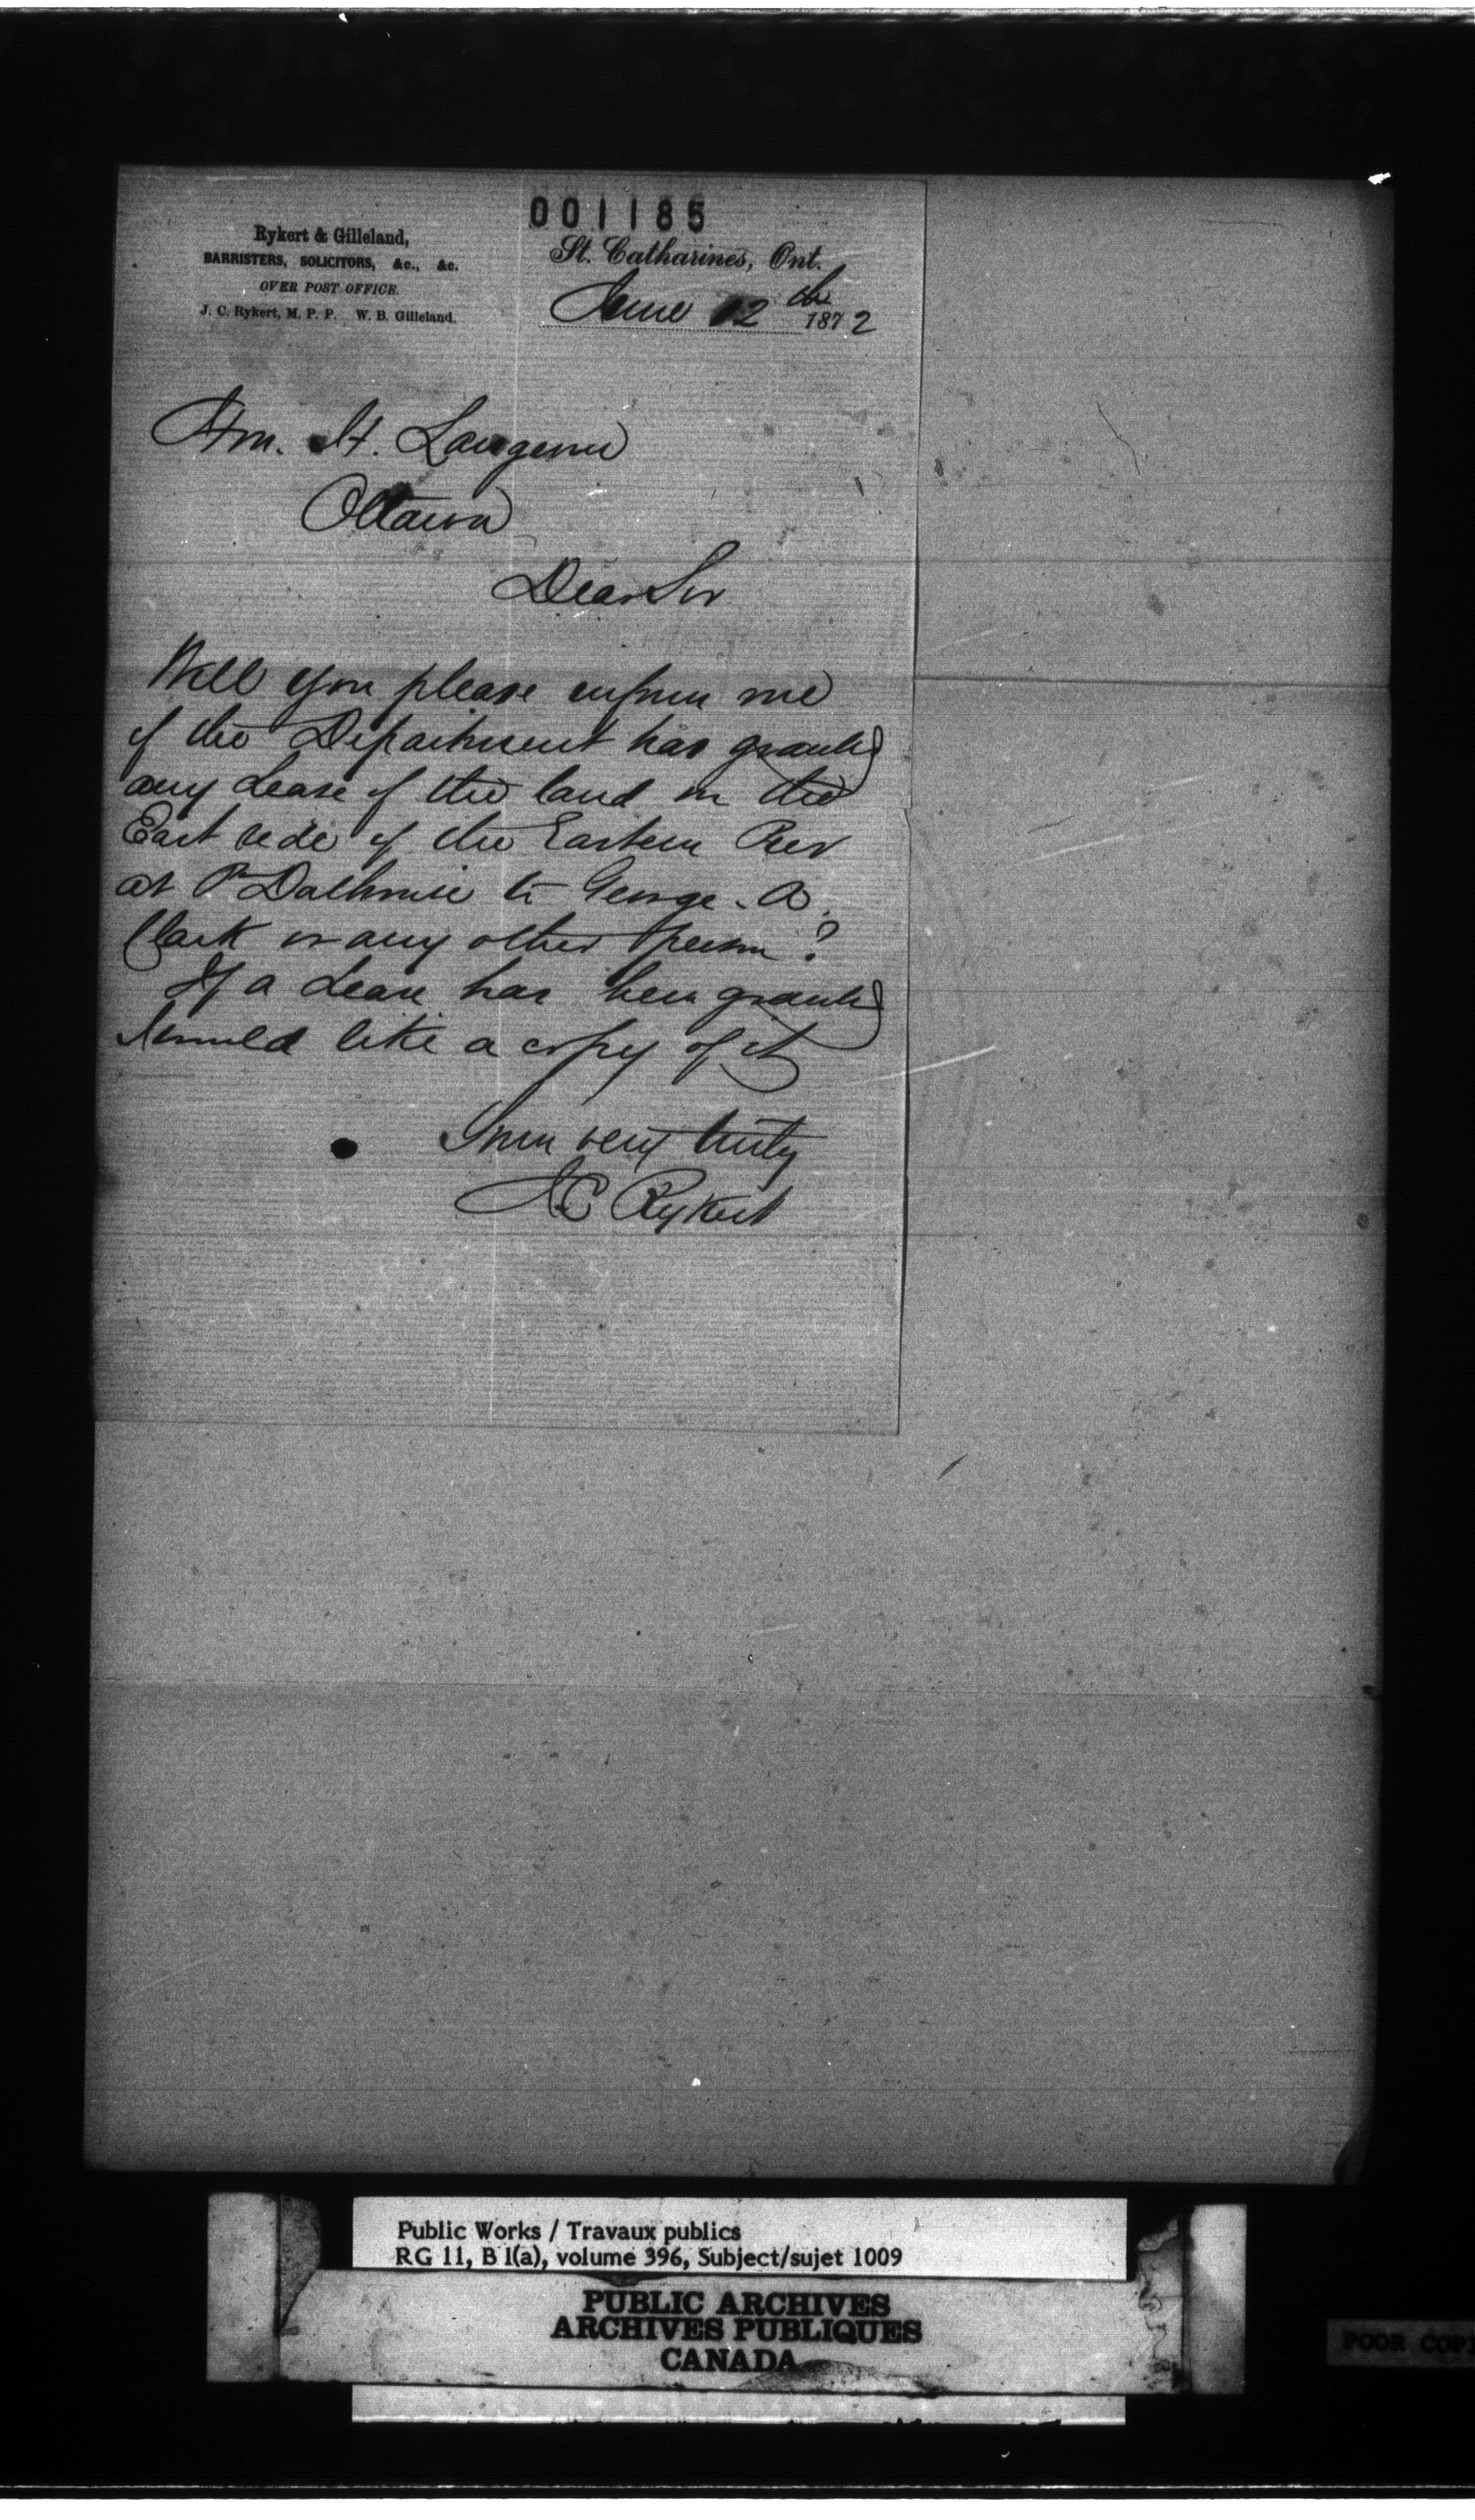 001185
Rykert & Gilleland,
BARRISTERS, SOLICITORS, &c., &c.
OVER POST OFFICE.
J. C. Rykert, M. P. P. W. B. Gilleland.
St. Catharines, Ont.
June 12th 1872
Hon. H. Langevin
Ottawa
Dear Sir
Will you please inform me
if the Department has granted
any Lease of the land on the
East side of the Eastern Pier
at Pt Dalhousie to George. A.
Clark or any other person?
If a Lease has been granted
I would like a copy of it
Yours very truly
J C Rykert
Public Works / Travaux publics
RG 11, B 1(a), volume 396, Subject/sujet 1009
PUBLIC ARCHIVES
ARCHIVES PUBLIQUES
CANADA
POOR COP